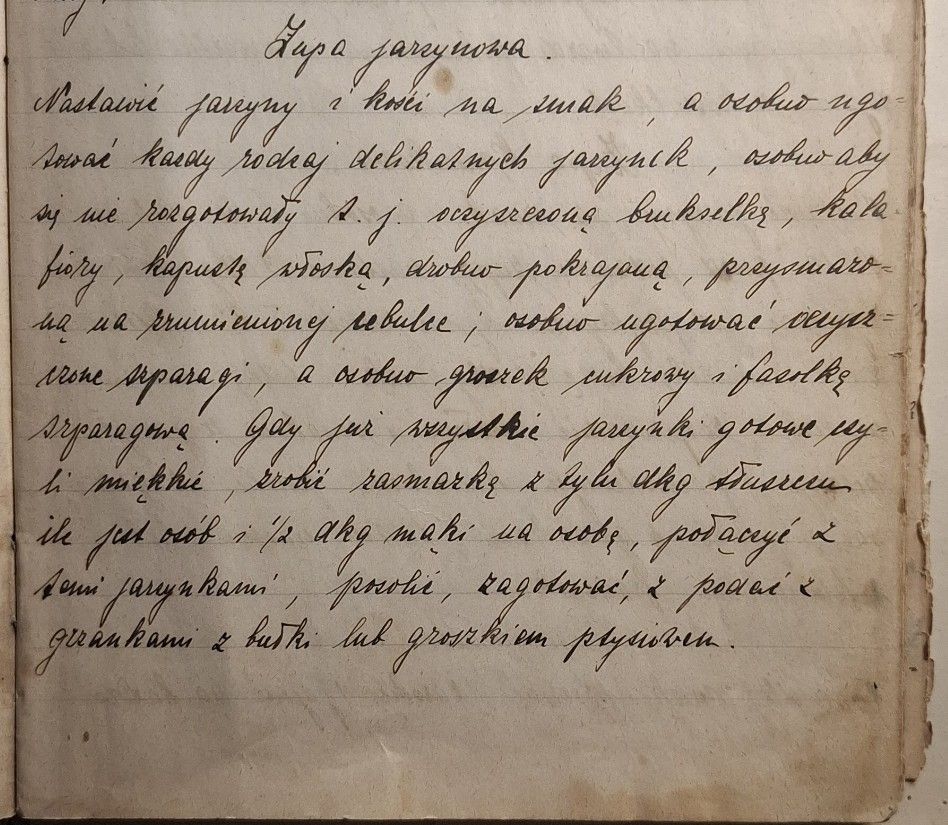 Zupa jarzynowa.
Nastawić jarzyny i kości na smak, a osobno ugo=
tować każdy rodzaj delikatnych jarzynek, osobno aby
się nie rozgotowały t. j. oczyszczoną brukselkę, kala-
fiory, kapustę włoską, drobno pokrajaną, przysmażo=
ną na zrumienionej cebulce; osobno ugotować oczysz=
czone szparagi, a osobno groszek cukrowy i fasolkę
szparagową. Gdy już wszystkie jarzynki gotowe czy=
li miękkie, zrobić zasmażkę z tylu dkg tłuszczu
ile jest osób i 1/2 dkg mąki na osobę, połączyć z
temi jarzynkami, posolić, zagotować, z podać z
grzankami z bułki lub groszkiem ptysiowem.